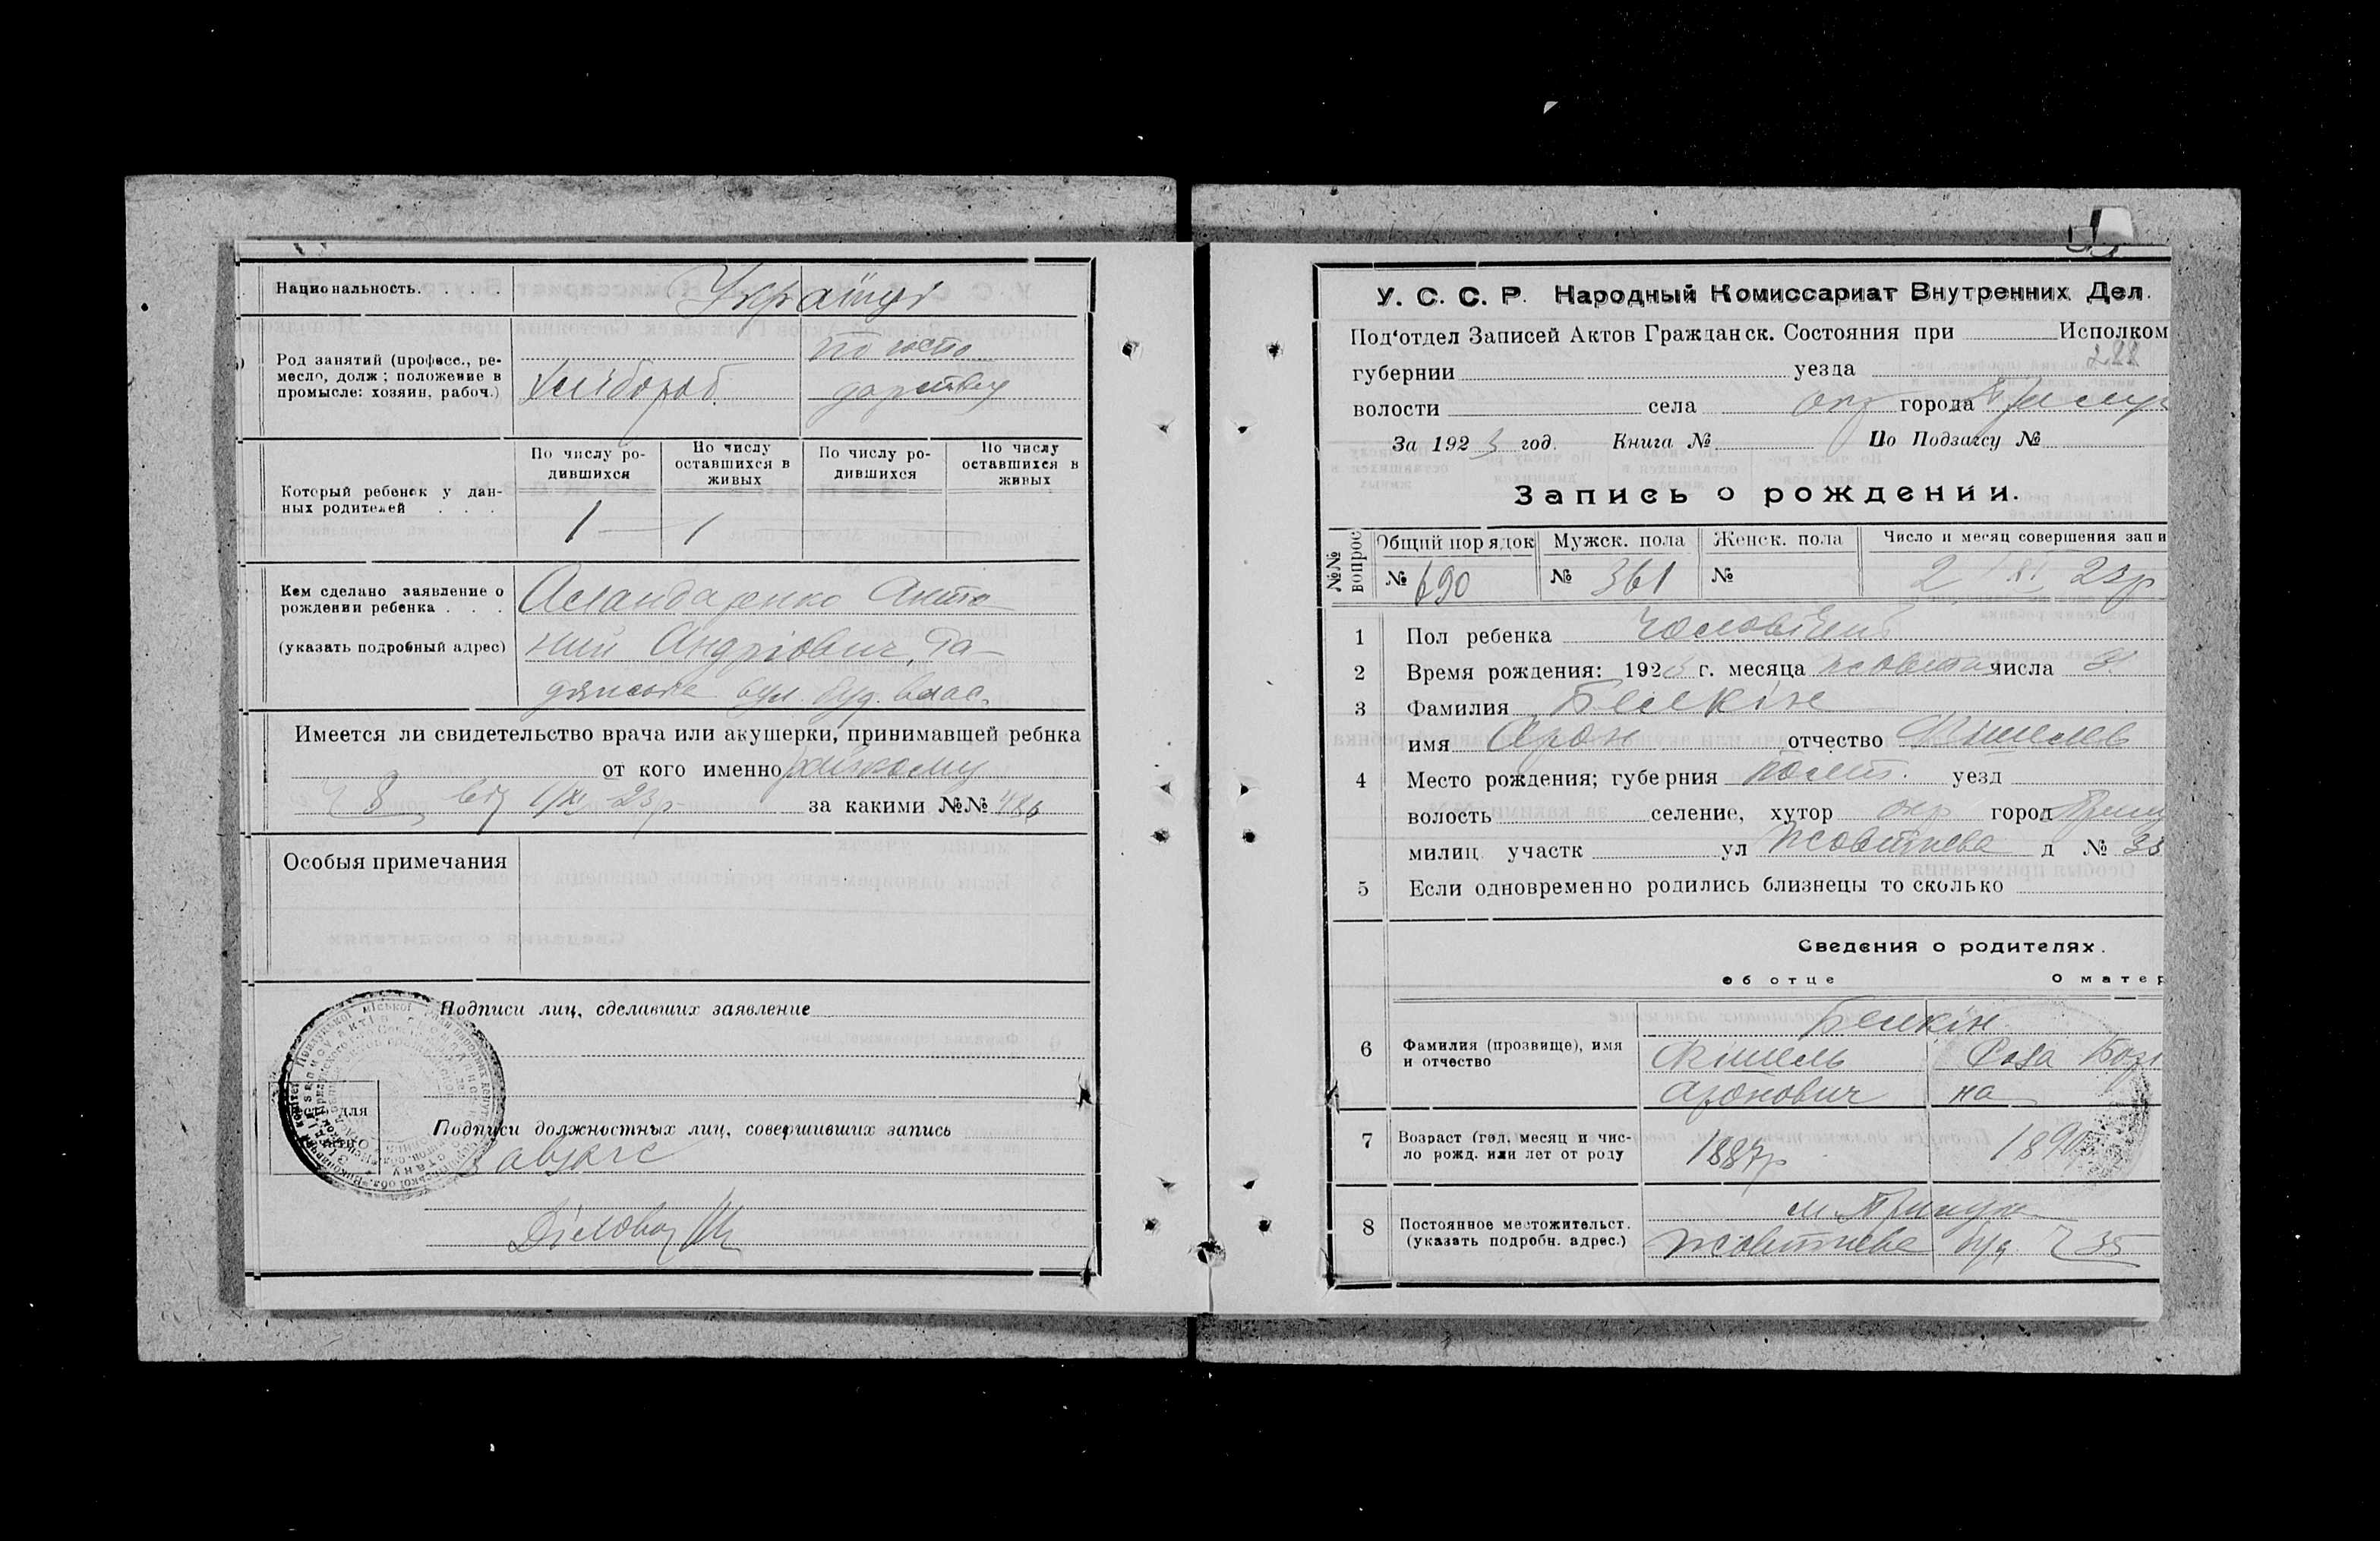 Национальность. . . . . Українці
Род занятий (професс., ре-
месло, долж; положение в
промысле: хозяин, рабоч.)
Хлібороб.
по госпо
дарству
По числу ро-
дившихся
По числу
оставшихся в
живых
По числу ро-
дившихся
По числу
оставшихся в
живых
Который ребенок у дан-
ных родителей . . .
1 — 1
Кем сделано заявление о
рождении ребенка . . .
(указать подробный адрес)
Анто-
ний Андріович, Ра-
дянська вул. буд. влас.
Имеется ли свидетельство врача или акушерки, принимавшей ребнка
от кого именно
Ч 8 від 1/XI 23 р за какими №№ 486
Особыя примечания
Подписи лиц, сделавших заявление
Подписи должностных лиц, совершивших запись
Завзагс
Діловод
У. С. С. Р. Народный Комиссариат Внутренних Дел.
Под‘отдел Записей Актов Гражданск. Состояния при Исполком
288
губернии уезда
волости села окр города Прилук
За 1923 год. Книга № По Подзагсу №
Запись о рождении.
№№ вопрос
Общий порядок Мужск. пола Женск. пола Число и месяц совершения запи
№ 690 № 361 № 2 XI 23р
1 Пол ребенка Чоловічий
2 Время рождения: 1923 г. месяца жовтня числа 31
3 Фамилия Белкін
имя Арон отчество Фішелев
4 Место рождения; губерния Полт. уезд
волость селение, хутор окр город Прилу
милиц. участк ул Жовтнева д № 35
5 Если одновременно родились близнецы то сколько
Сведения о родителях.
об отце О матер
6 Фамилия (прозвище), имя
и отчество
Белкін
Фішель
Аронович
Роза
на
7 Возраст (год, месяц и чис-
ло рожд. или лет от роду
1887р 1890
8 Постоянное местожительст.
(указать подробн. адрес.)
м. Прилуки
Жовтнева буд Ч 35